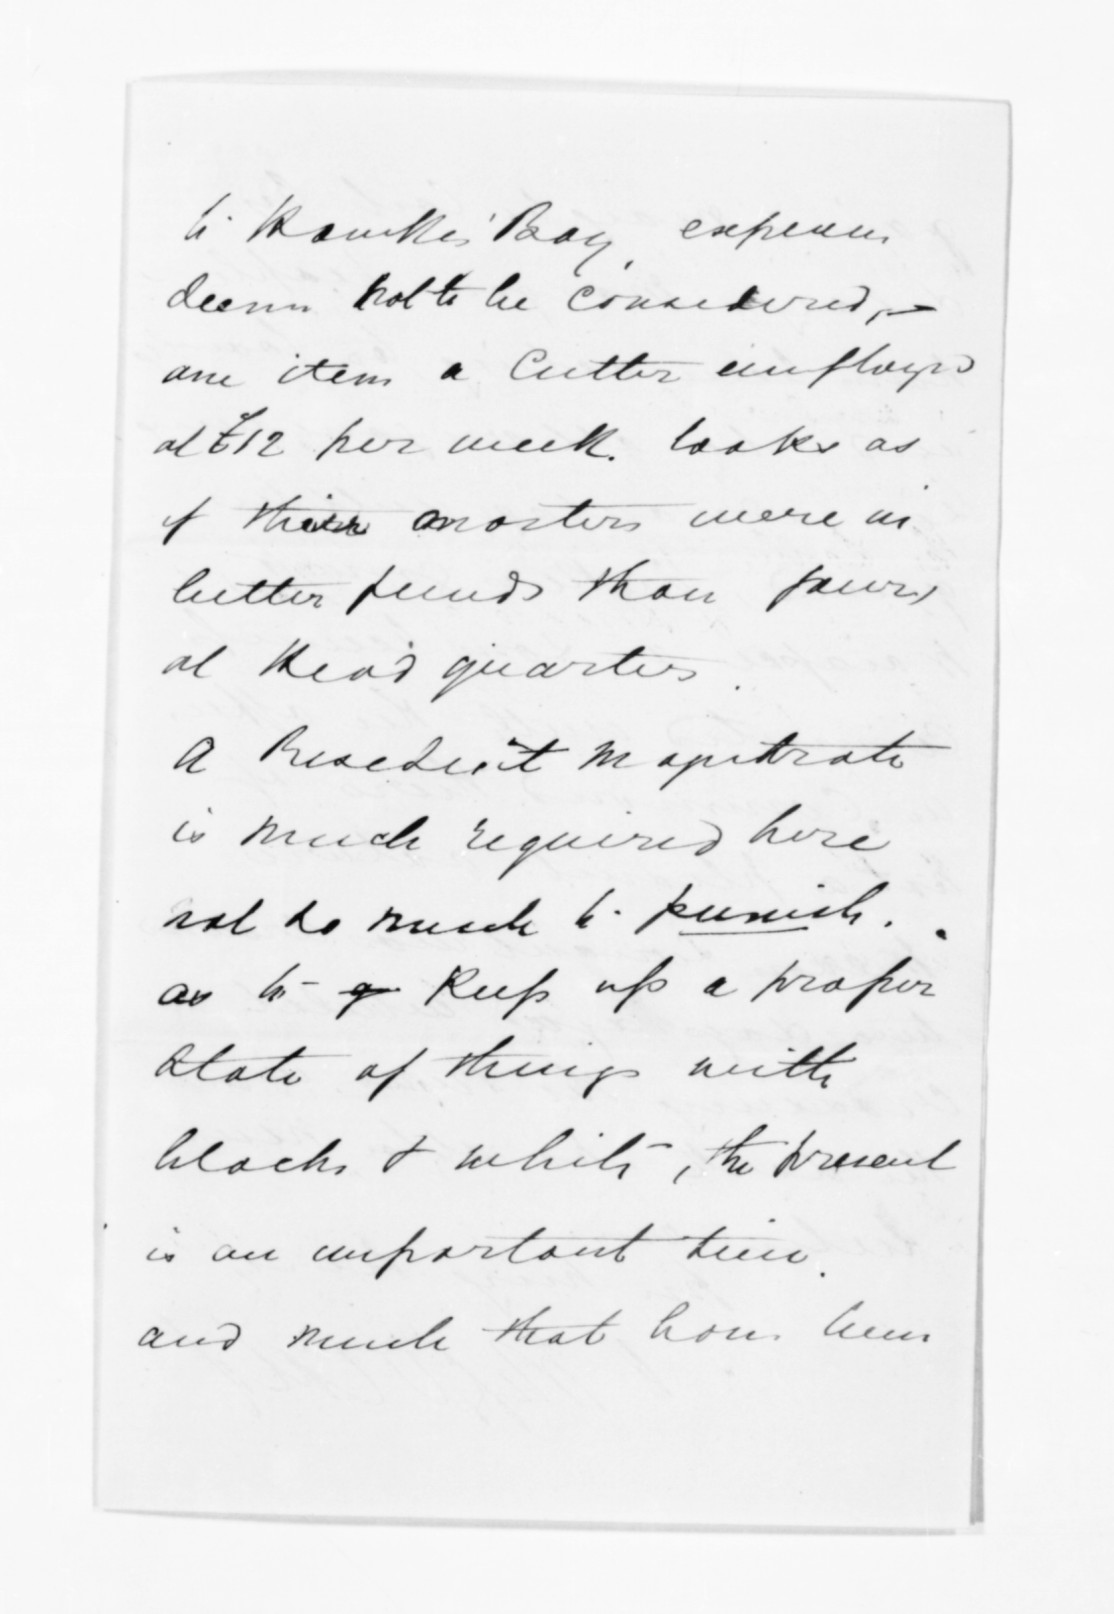 to Hawkes' Bay, expense
seems not to be considered, -
one item a Cutter employed
at £12 per week. looks as
if their masters were in
better funds than yours
at Head quarters.
A Resident Magistrate
is much required here
not so much to punish.
as to keep up a proper
state of things with
blacks & white, the present
is an important time.
and much that has been